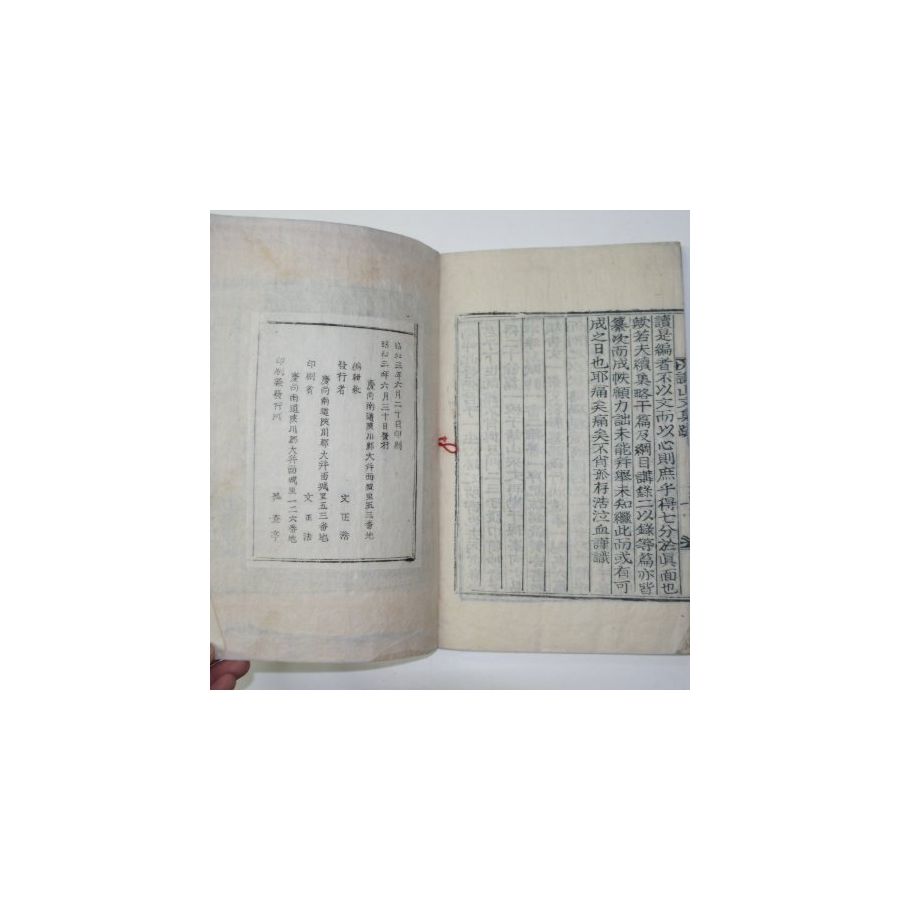 讀是編者不以文而以心則庶乎得七分於眞面也
般若夫續集略干篇及綱目講錄二以錄等篇亦皆
纂次而成帙顧力詘未能幷擧未知繼此而或有可
成之日也耶痛矣痛矣不肖孤存浩泣血謹識
昭和三年六月二十日印刷
昭和三年六月三十日發行
慶尙南道陜川郡大幷面 里五三番地
編輯兼
發行者 文正浩
慶尙南道陜川郡大幷面城里五三番地
印刷者 文正法
慶尙南道陜川郡大幷面城里一二六番地
印刷兼發行所